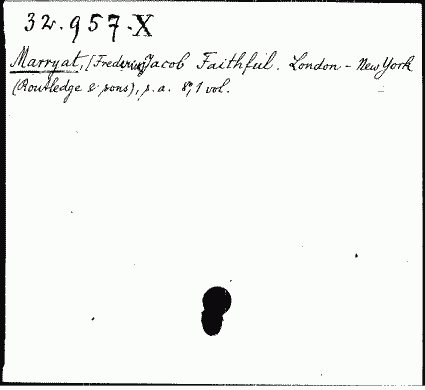 32.957-X
Marryat, [Frederick] Jacob Faithful. London - New York
(Routledge & sons), s.a. 8°, 1 vol.